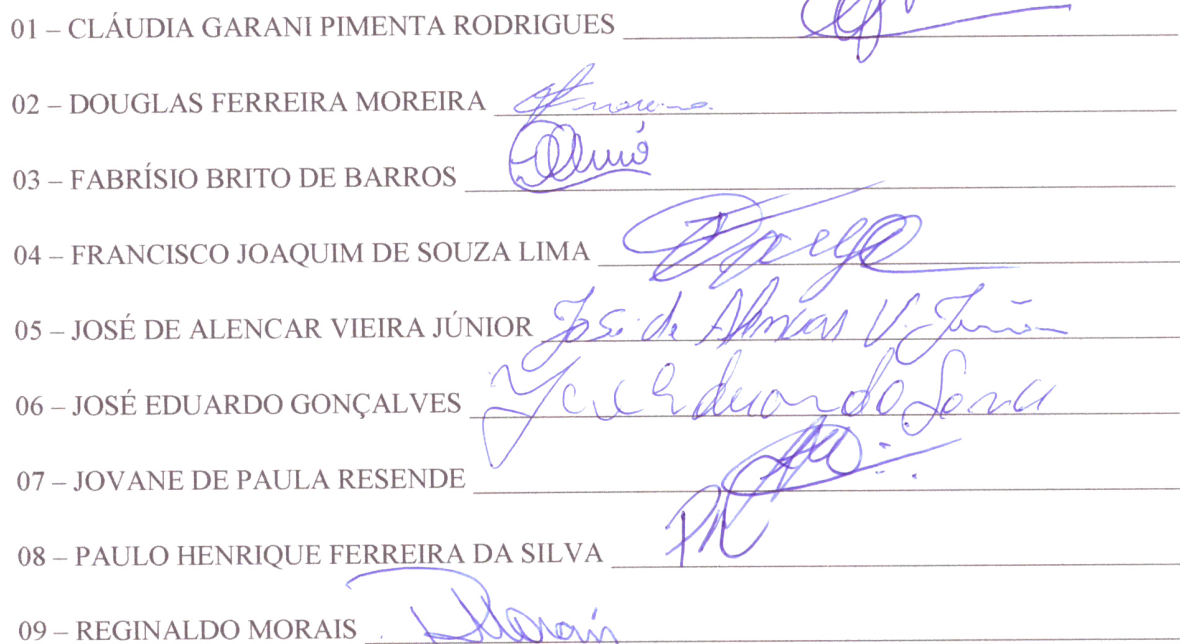 01 – CLÁUDIA GARANI PIMENTA RODRIGUES
02 – DOUGLAS FERREIRA MOREIRA
03 – FABRÍSIO BRITO DE BARROS
04 – FRANCISCO JOAQUIM DE SOUZA LIMA
05 – JOSÉ DE ALENCAR VIEIRA JÚNIOR José de Alencar V. Júnior
06 – JOSÉ EDUARDO GONÇALVES Eduardo
07 – JOVANE DE PAULA RESENDE
08 – PAULO HENRIQUE FERREIRA DA SILVA PH
09 – REGINALDO MORAIS RMorais